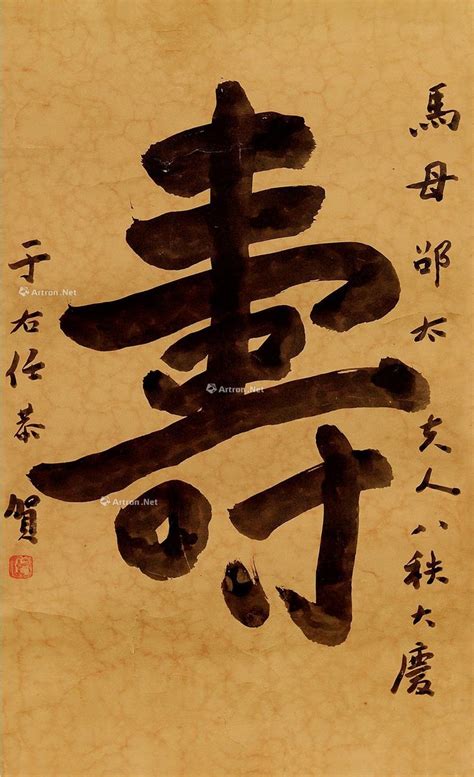 馬母邵太夫人八秩大慶
壽
于右任恭賀
Artron.Net
Artron.Net
Artron.Net